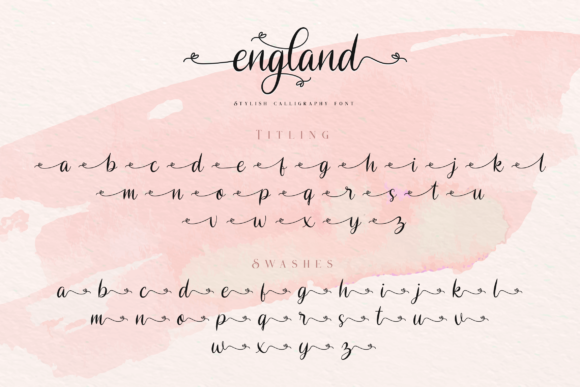 england
STYLISH CALLIGRAPHY FONT
TITLING
a b c d e f g h i j k l
m n o p q r s t u
v w x y z
SWASHES
a b c d e f g h i j k l
m n o p q r s t u v
w x y z